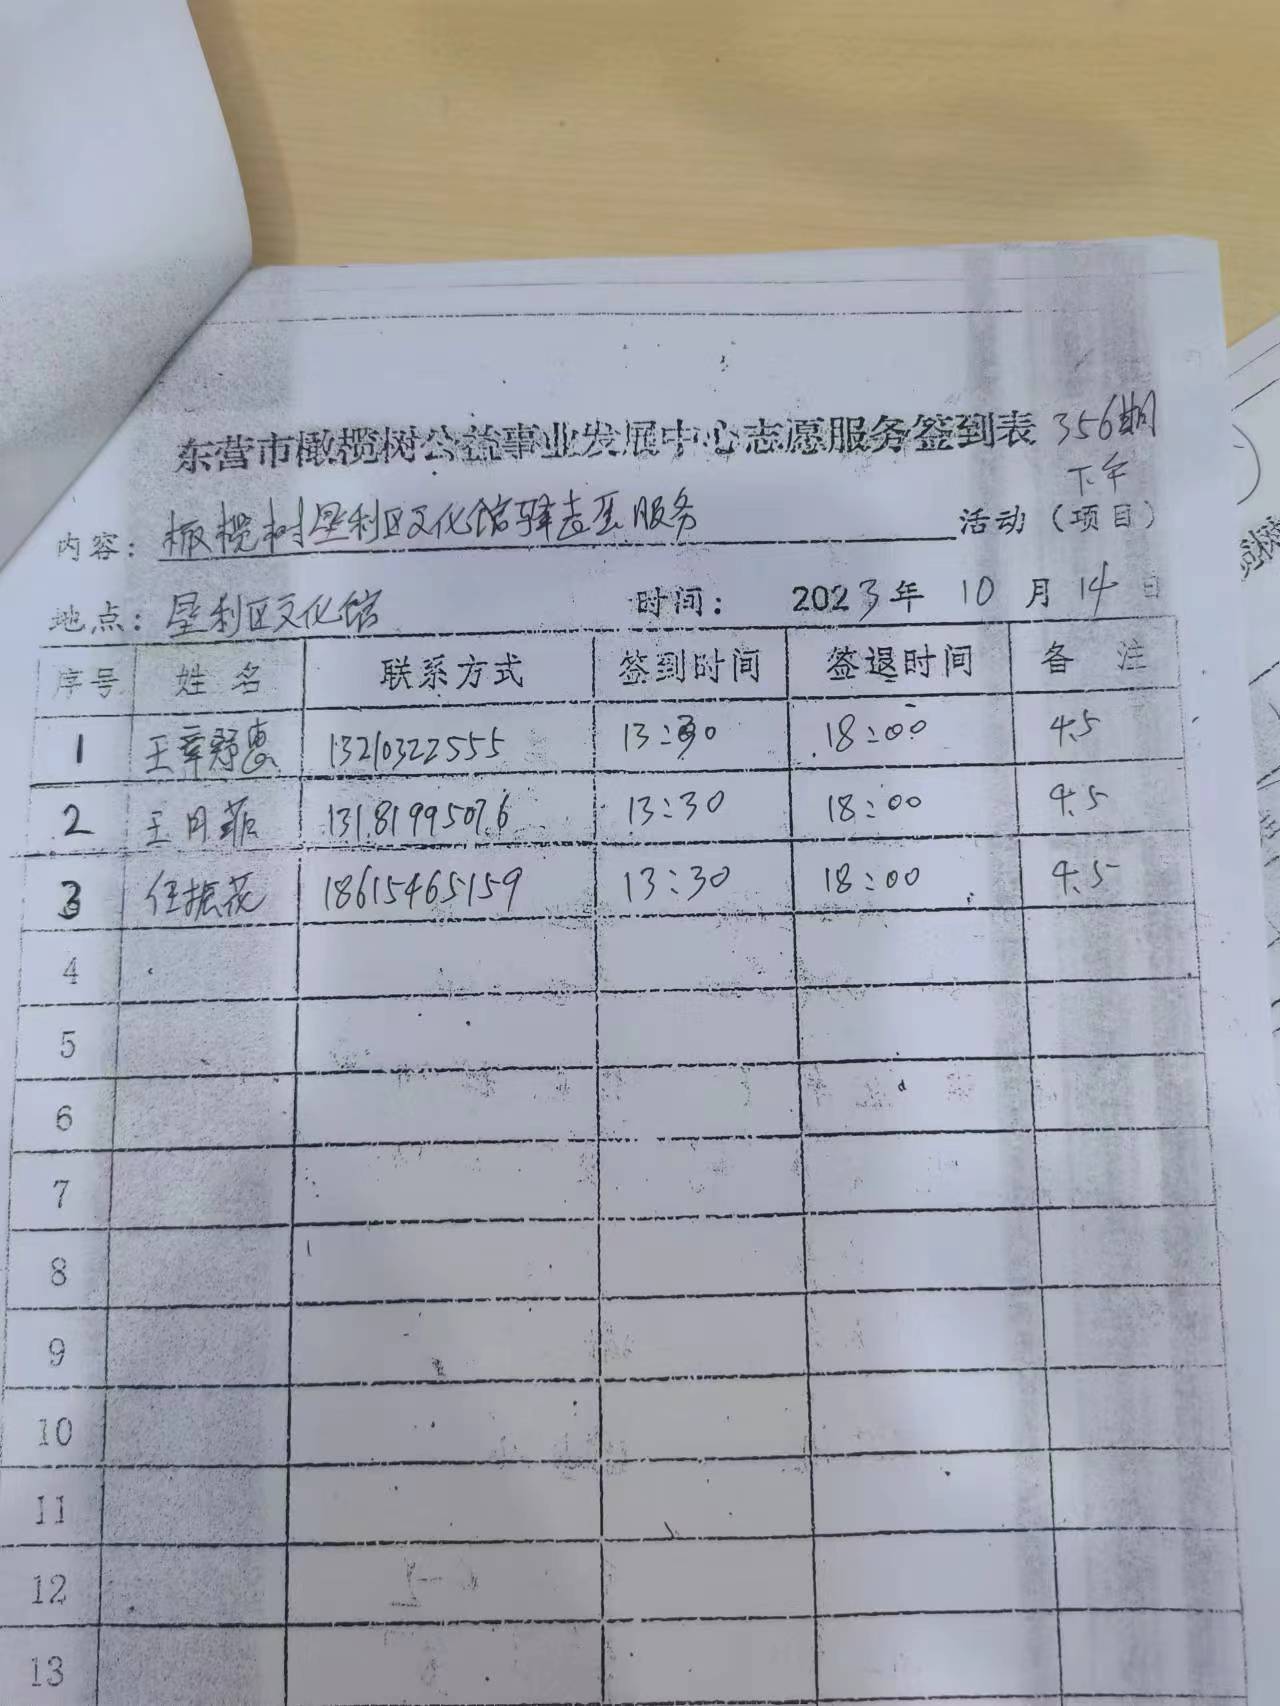 东营市橄榄树公益事业发展中心志愿服务签到表 356期
下午
内容: 橄榄树垦利区文化馆驿志愿服务 活动（项目）
地点: 垦利区文化馆 时间: 2023年 10 月 14 日
序号 姓名 联系方式 签到时间 签退时间 备注
1 王 13210322555 13:30 18:00 4.5
2 王月菲 13181995076 13:30 18:00 4.5
3 任振花 18615465159 13:30 18:00 4.5
4
5
6
7
8
9
10
11
12
13